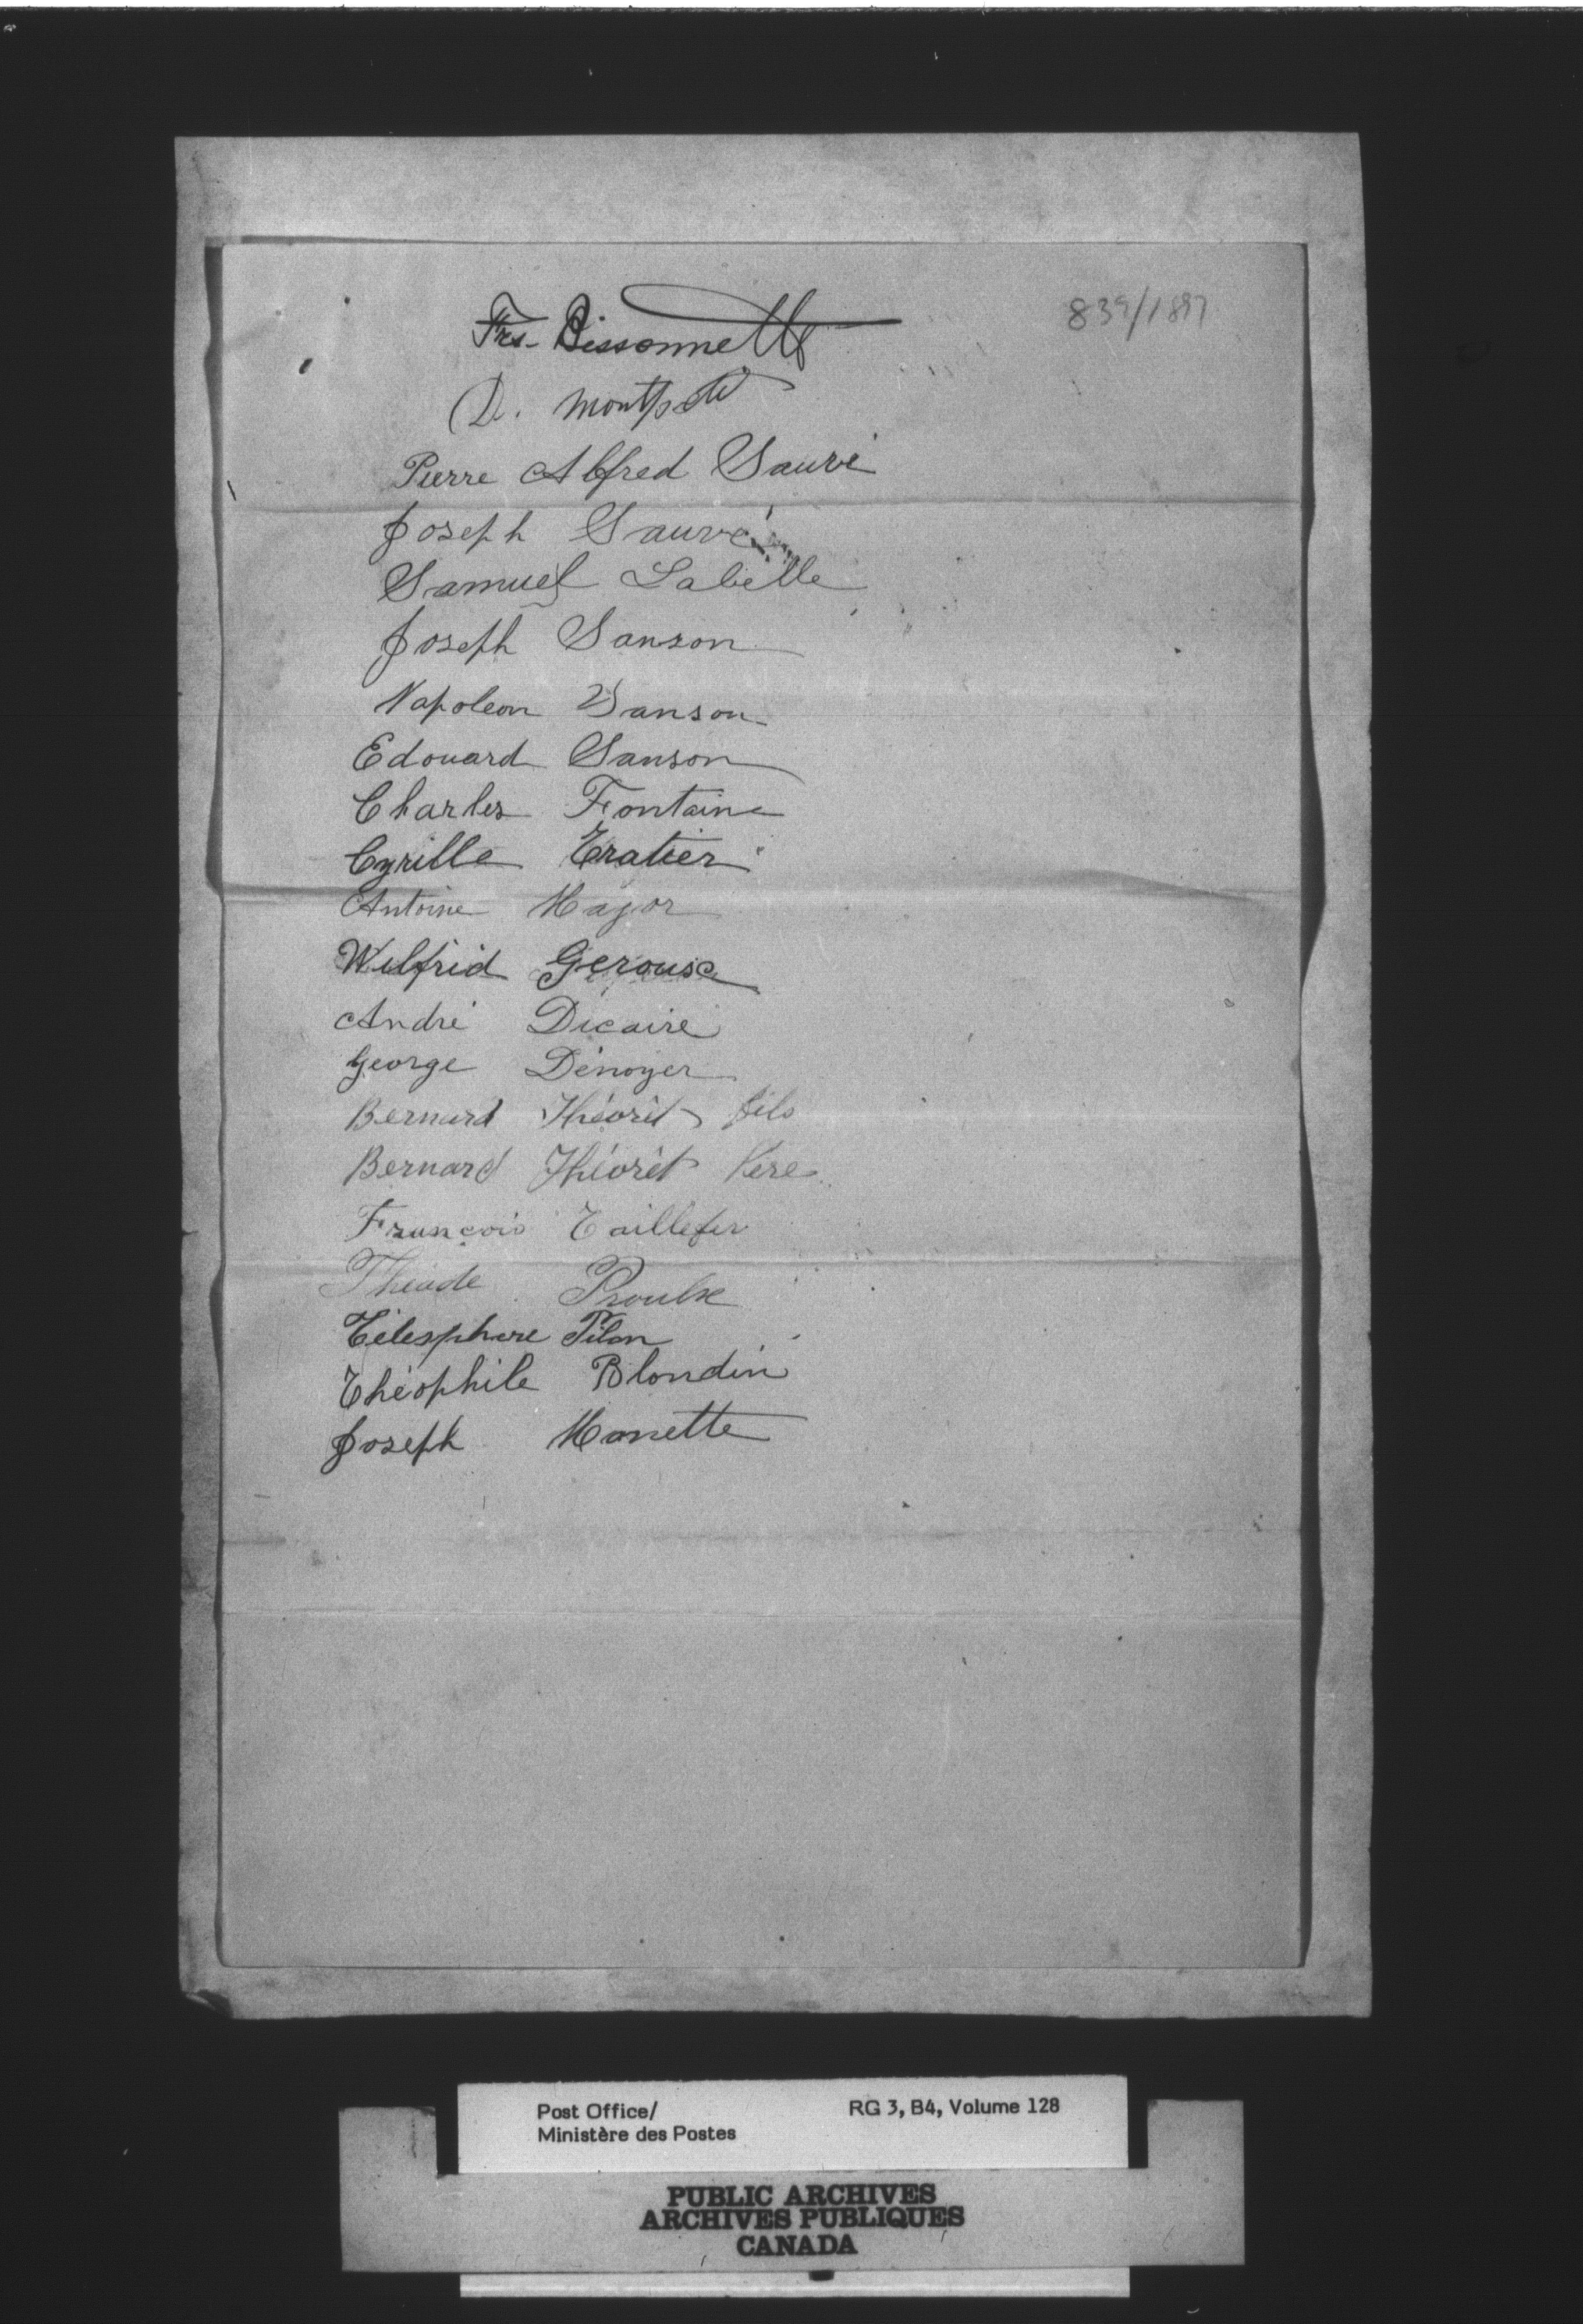 839/1897
Frs. Bissonnette
D. Montpetit
Pierre Alfred Sauvé
Joseph Sauvé
Samuel Labelle
Joseph Sanson
Napoleon Sanson
Edouard Sanson
Charles Fontaine
Cyrille Eratier
Antoine Major
Wilfrid Gerouse
André Dicaire
George Dénoyer
Bernard Théorèt fils
Bernard Théorèt Pere
François Taillefer
Théode Proulx
Télesphore Pilon
Théophile Blondin
Joseph Monette
Post Office/ RG 3, B4, Volume 128
Ministère des Postes
PUBLIC ARCHIVES
ARCHIVES PUBLIQUES
CANADA